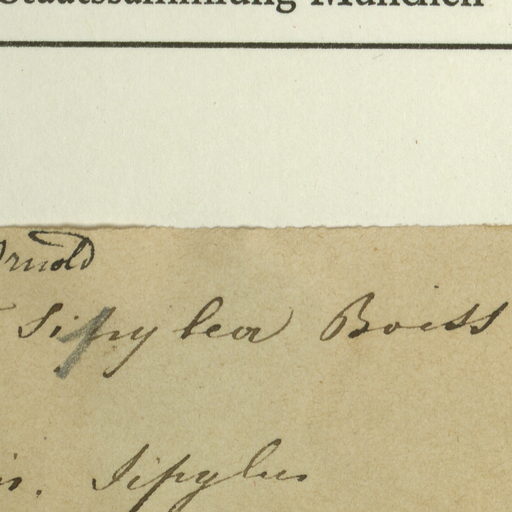 Staatssammlung München
Arnold
Sipylea Boiss
is. Sipylus